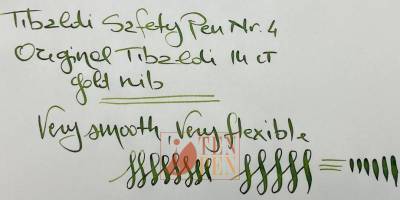 Tibaldi Safety Pen Nr. 4
Original Tibaldi 14 CT
gold nib
Very smooth, Very flexible
TEN
PEN